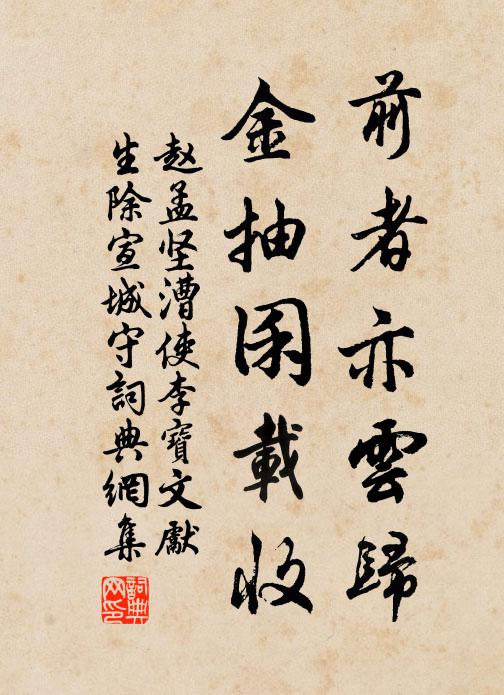 前者亦雲歸
金抽困載收
赵孟坚漕使李寶文獻
生除宣城守詞典網集
詞典网印